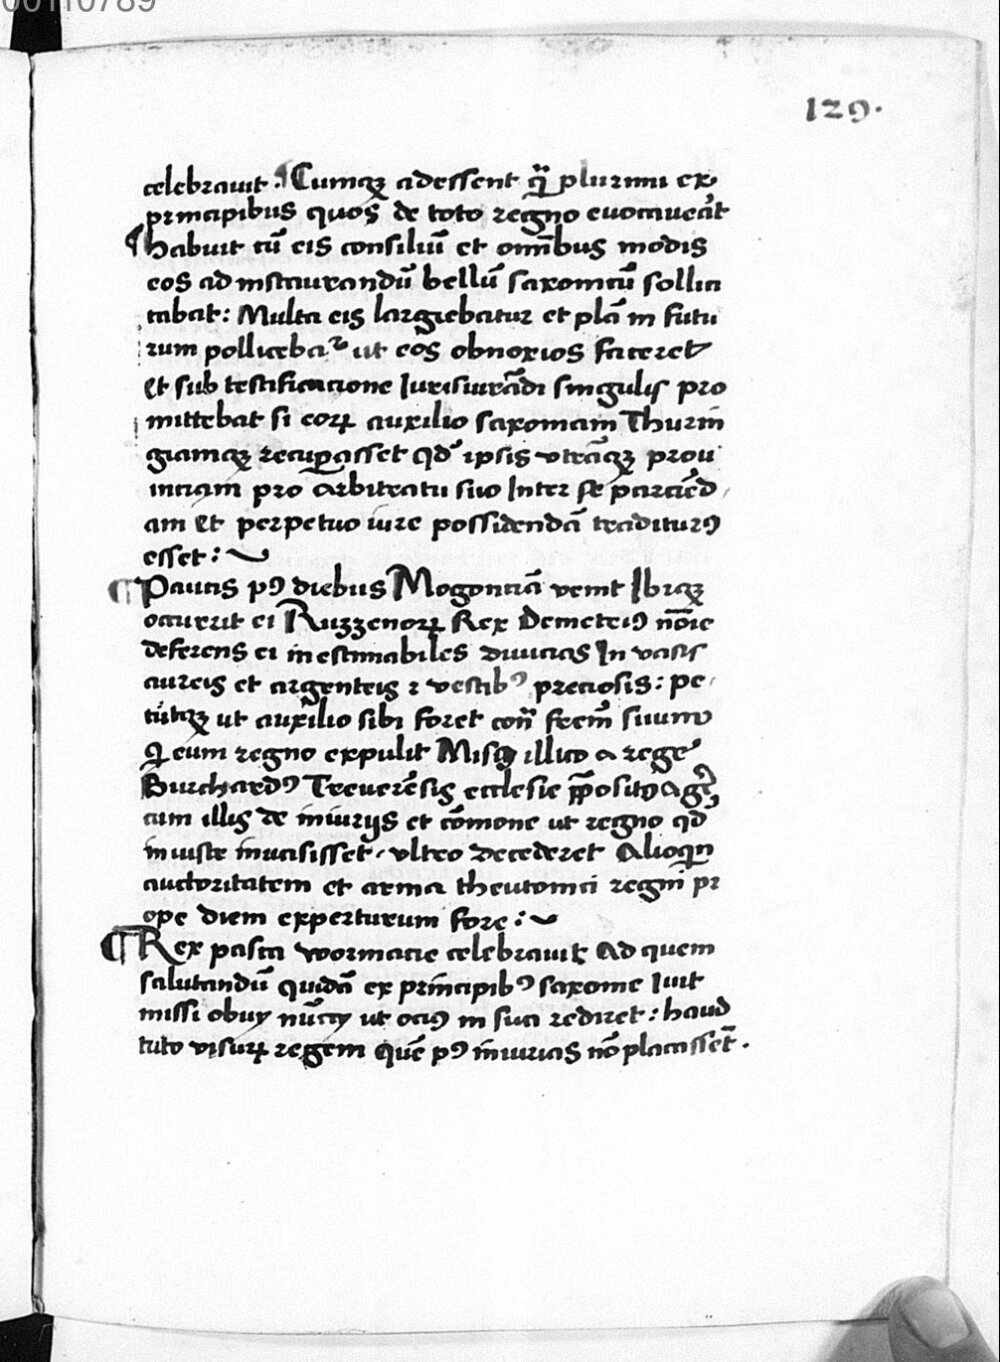 00110789
129.
celebrauit. ¶Cumqꝫ adessent q̄ plurimi ex
principibus quos de toto regno euocauerāt
¶habuit cū eis consiliū et omībus modis
eos ad instaurandū bellū saxonicū sollici
tabat: Multa eis largiebatur et plā in futu
rum pollicebaᵗ ut eos obnoxios faceret
et sub testificacione Iurisiurādi singulis pro
mittebat si eoꝝ auxilio saxoniam Thurin
giamqꝫ recuꝑasset qd̓ ipsis vtrāqꝫ prou
inciam pro arbitratu suo Inter se parciēd
am et perpetuo iure possidendā traditurꝰ
esset:
¶Paucis pꝰ diebus Mogonciā venit Ibiqꝫ
occurrit ei Ruzzenoꝝ Rex Demetriꝰ nōie
deferens ei inestimabiles diuicias In vasis
aureis et argenteis ⁊ vestibꝰ preciosis: pe
tiītqꝫ ut auxilio sibi foret cont̄ frem̄ suum
q̄ eum regno expulit Missꝰ illico a rege
Burchardꝰ Treuerēsis ecclesie p̄positꝰ agēs
cum illis de iniurijs et cōmone ut regno qd̓
iniuste inuasisset, vltro decederet Alioquin
auctoritatem et arma theutonici regni pr
ope diem experturum fore:
¶Rex pasca wormacie celebrauit Ad quem
salutandū quidā ex principibꝰ saxonie Iuit
missi obuij nūcij ut ociꝰ in sua rediret: haud
tuto visuꝝ regem quē pꝰ iniurias nō placasset̄.